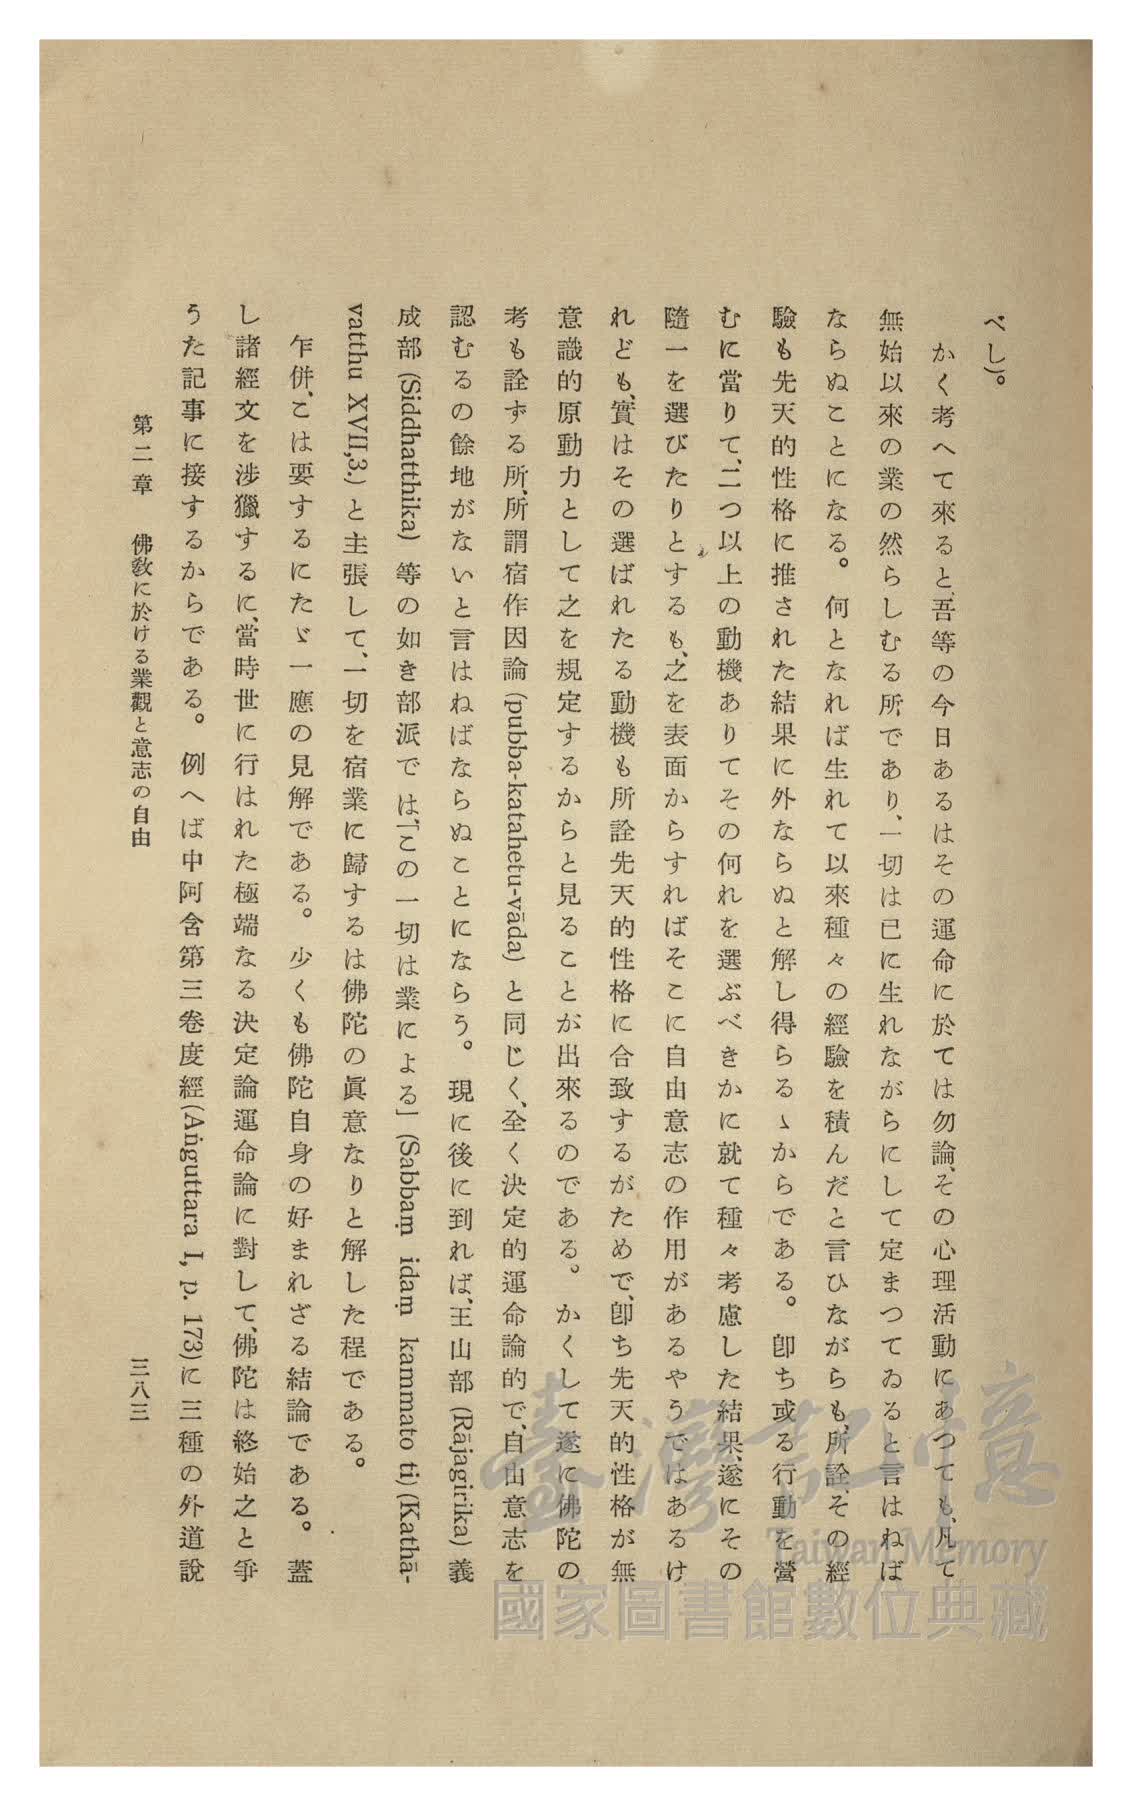 べし)。
かく考へて來ると、吾等の今日あるはその運命に於ては勿論、その心理活動にあつても、凡て
無始以來の業の然らしむる所であり、一切は已に生れながらにして定まつてゐると言はねば
ならぬことになる。何となれば生れて以來種々の經驗を積んだと言ひながらも、所詮、その經
驗も先天的性格に推された結果に外ならぬと解し得らるゝからである。卽ち或る行動を營
むに當りて、二つ以上の動機ありてその何れを選ぶべきかに就て種々考慮した結果、遂にその
隨一を選びたりとするも、之を表面からすればそこに自由意志の作用があるやうではあるけ
れども、實はその選ばれたる動機も所詮先天的性格に合致するがためで、卽ち先天的性格が無
意識的原動力として之を規定するからと見ることが出來るのである。かくして遂に佛陀の
考も詮ずる所、所謂宿作因論(pubba-katahetu-vāda)と同じく、全く決定的運命論的で、自由意志を
認むるの餘地がないと言はねばならぬことにならう。現に後に到れば、王山部(Rājagirika)義
成部(Siddhatthika)等の如き部派では、「この一切は業による」(Sabbaṃ idaṃ kammato ti)(Kathā-
vatthu XVII,3.)と主張して、一切を宿業に歸するは佛陀の眞意なりと解した程である。
乍併、こは要するにたゞ一應の見解である。少くも佛陀自身の好まれざる結論である。蓋
し諸經文を涉獵するに、當時世に行はれた極端なる決定論運命論に對して、佛陀は終始之と爭
うた記事に接するからである。例へば中阿含第三卷度經(Aṅguttara I, p. 173)に三種の外道說
第二章 佛敎に於ける業觀と意志の自由
三八三
臺灣記憶
Taiwan Memory
國家圖書館數位典藏